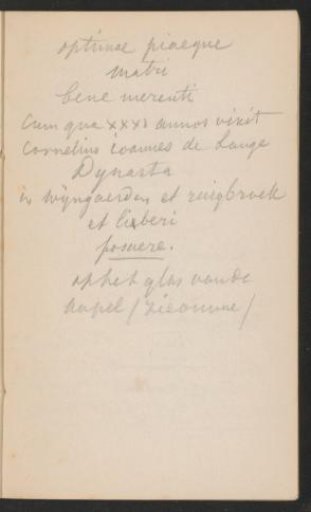 optimae piaeque
matri
bene merenti
cum qua xxxi annos vixit
Cornelius ioannes de Lange
Dynasta
in Wijngaerden et ruigbroek
et liberi
posuere.
op het glas van de
kapel (zie omme)